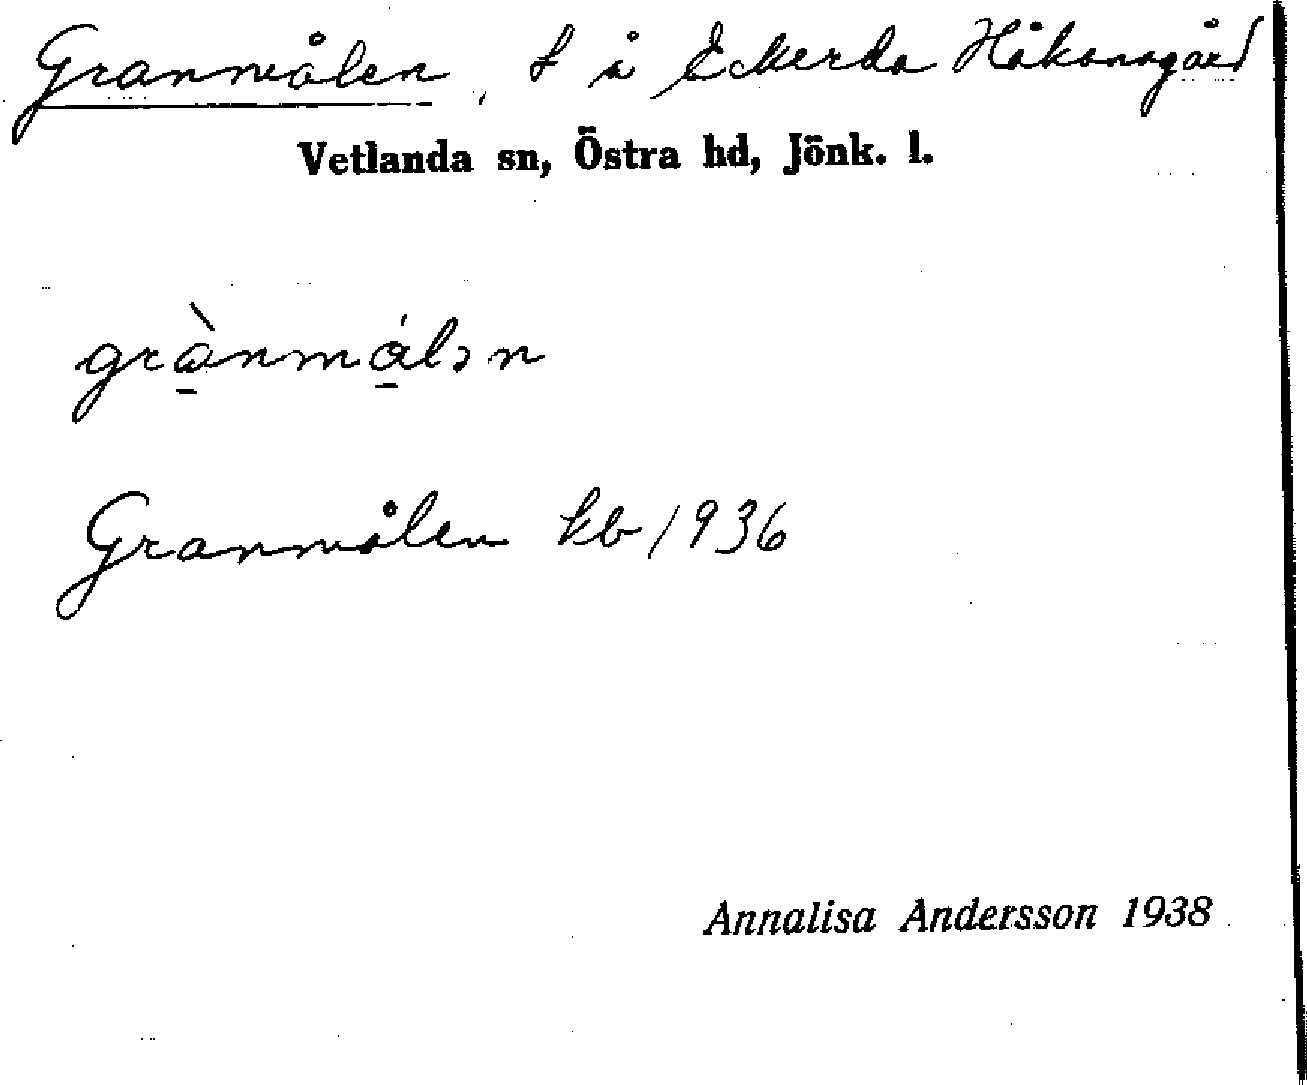 Granmålen, t å Eckerda Håkansgård
Vetlanda sn, Östra hd, Jönk. l.
grànmálən
Granmålen kb 1936
Annalisa Andersson 1938